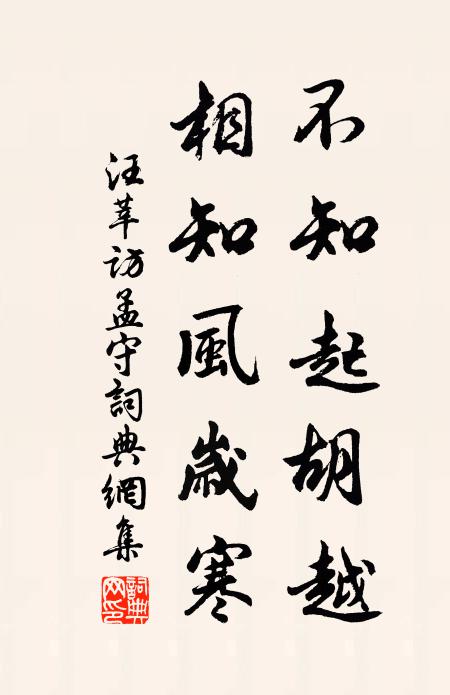 不知起胡越
相知風歲寒
汪莘訪孟守詞典網集
詞典网印